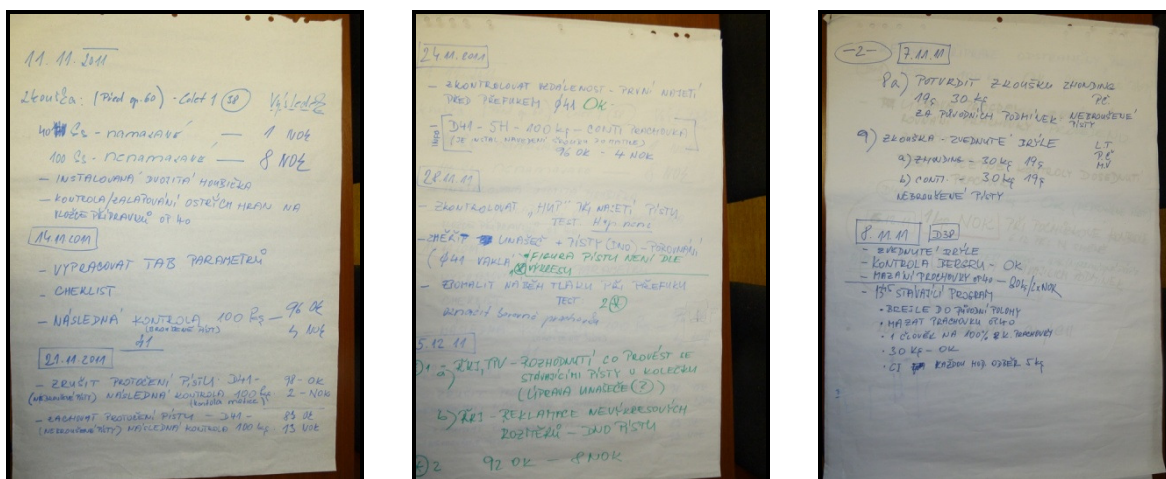 11. 11. 2011
Zkouška: (Před op. 60) - Colet 1 38 Výsledek
40 ks - namazané — 1 NOK
100 ks - nenamazané — 8 NOK
- INSTALOVANÁ DVOJITÁ HOUBIČKA
- KONTROLA/ZALAPOVÁNÍ OSTRÝCH HRAN NA
KOŽCE PŘÍPRAVKŮ OP 40
14.11.2011
- VYPRACOVAT TAB PARAMETRŮ
- CHEKLIST
- NÁSLEDNÁ KONTROLA 100 ks — 96 OK
4 NOK
41
21.11.2011
- ZRUŠIT PROTOČENÍ PÍSTU - D41 - 98 - OK
NÁSLEDNÁ KONTROLA 100 ks 2 - NOK
- ZACHOVAT PROTOČENÍ PÍSTU - D41 - 85 OK
(NEBROUŠENÉ PÍSTY) NÁSLEDNÁ KONTROLA 100 kg - 15 NOK
24.11.2011
- ZKONTROLOVAT VZDÁLENOST - PRVNÍ NAJETÍ
PŘED PŘEFUKEM ϕ41 OK
D41 - SH - 100 kg - CONTI PRACHOVKA
96 OK - 4 NOK
28.11.11
- ZKONTROLOVAT "HUP" PŘI NAJETÍ PÍSTU
TEST
- MĚŘIT UNAŠEČ + PÍSTY (DNO) - POROVNÁNÍ
(ϕ41 VAKLÁ - FIGURA PÍSTU NENÍ DLE
VÝKRESU
- ZPOMALIT NÁBĚH TLAKU PŘI PŘEFUKU
TEST
5.12.11
1 a) ŘKJ, TPV - ROZHODNUTÍ CO PROVÉST SE
STÁVAJÍCÍMI PÍSTY V KOLEČKU
(ÚPRAVA UNAŠEČE (?))
b) ŘKJ - REKLAMACE NEVÝKRESOVÝCH
ROZMĚRŮ - DNO PÍSTU
2 92 OK - 8 NOK
-2- 7.11.11
8a) POTVRDIT ZKOUŠKU ZMONDING
19g 30 kg PČ
ZA PŮVODNÍCH PODMÍNEK NEBROUŠENÉ
PÍSTY
9) ZKOUŠKA - ZVEDNUTÉ BRÝLE LT
a) ZMONDING - 30 kg 19g PČ
b) CONTI - 30 kg 19g MV
NEBROUŠENÉ PÍSTY
8.11.11 D38
- ZVEDNUTÉ BRÝLE
- KONTROLA - OK
- MAZÁNÍ PRACHOVKY OP40 - 80 ks/2xNOK
- STÁVAJÍCÍ PROGRAM
• BREJLE DO PŮVODNÍ POLOHY
• MAZAT PRACHOVKU OP40
• 1 ČLOVĚK NA 100% PRACHOVKY
• 30 kg - OK
KAŽDOU HOD. ODBĚR 5 kg